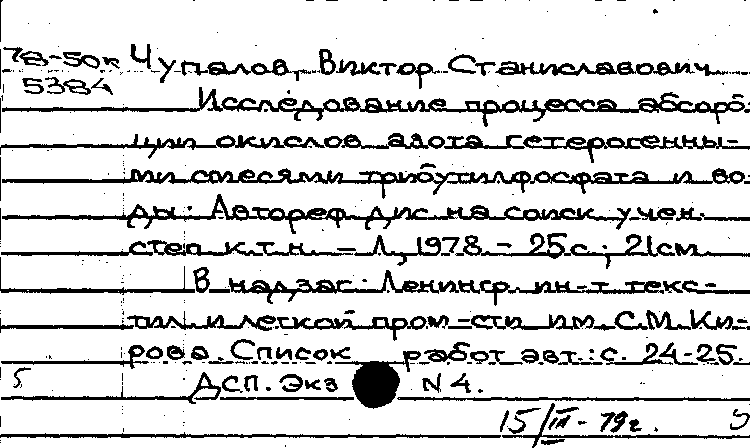 78-50к Чупалов, Виктор Станиславович
5384
Исследование процесса абсорб
ции окислов азота гетерогенны-
ми смесями трибутилфосфата и во
ды: Автореф дис на соиск учен.
степ к.т.н. - Л., 1978 - 25с.; 21см
В надзаг: Ленингр. ин-т текс-
тил. и легкой пром-сти им. С.М. Ки-
рова. Список работ авт.: с. 24-25.
5 ДСП. Экз N 4.
15/III - 79г.